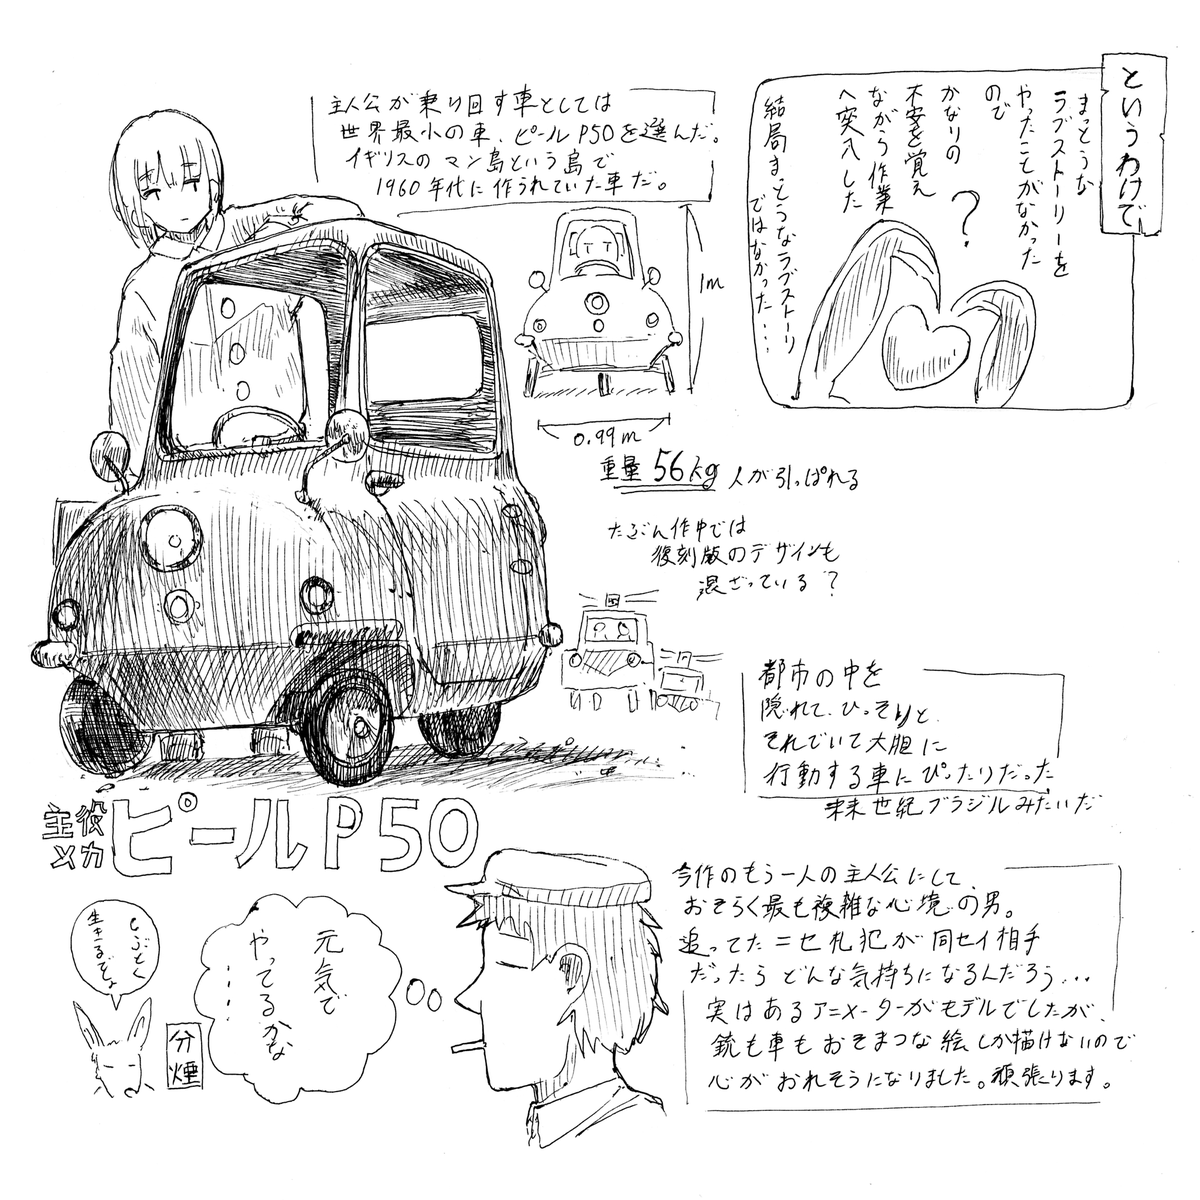 というわけで
まっとうな
ラブストーリーを
やったことがなかった
ので
かなりの
不安を覚え
ながら作業
へ突入した
?
結局まっとうなラブストーリー
ではなかった...
主人公が乗り回す車としては
世界最小の車、ピールP50を選んだ。
イギリスのマン島という島で
1960年代に作られていた車だ。
1m
0.99m
重量 56kg 人が引っぱれる
たぶん作中では
復刻版のデザインも
混ざっている?
都市の中を
隠れて、ひっそりと、
それでいて大胆に
行動する車にぴったりだった
未来世紀ブラジルみたいだ
主役
メカ
ピールP50
今作のもう一人の主人公にして、
おそらく最も複雑な心境の男。
追ってたニセ札犯が同セイ相手
だったらどんな気持ちになるんだろう...
実はあるアニメーターがモデルでしたが、
銃も車もおそまつな絵しか描けないので
心がおれそうになりました。頑張ります。
元気で
やってるかな
....
しぶとく
生きてるぞよ
分煙